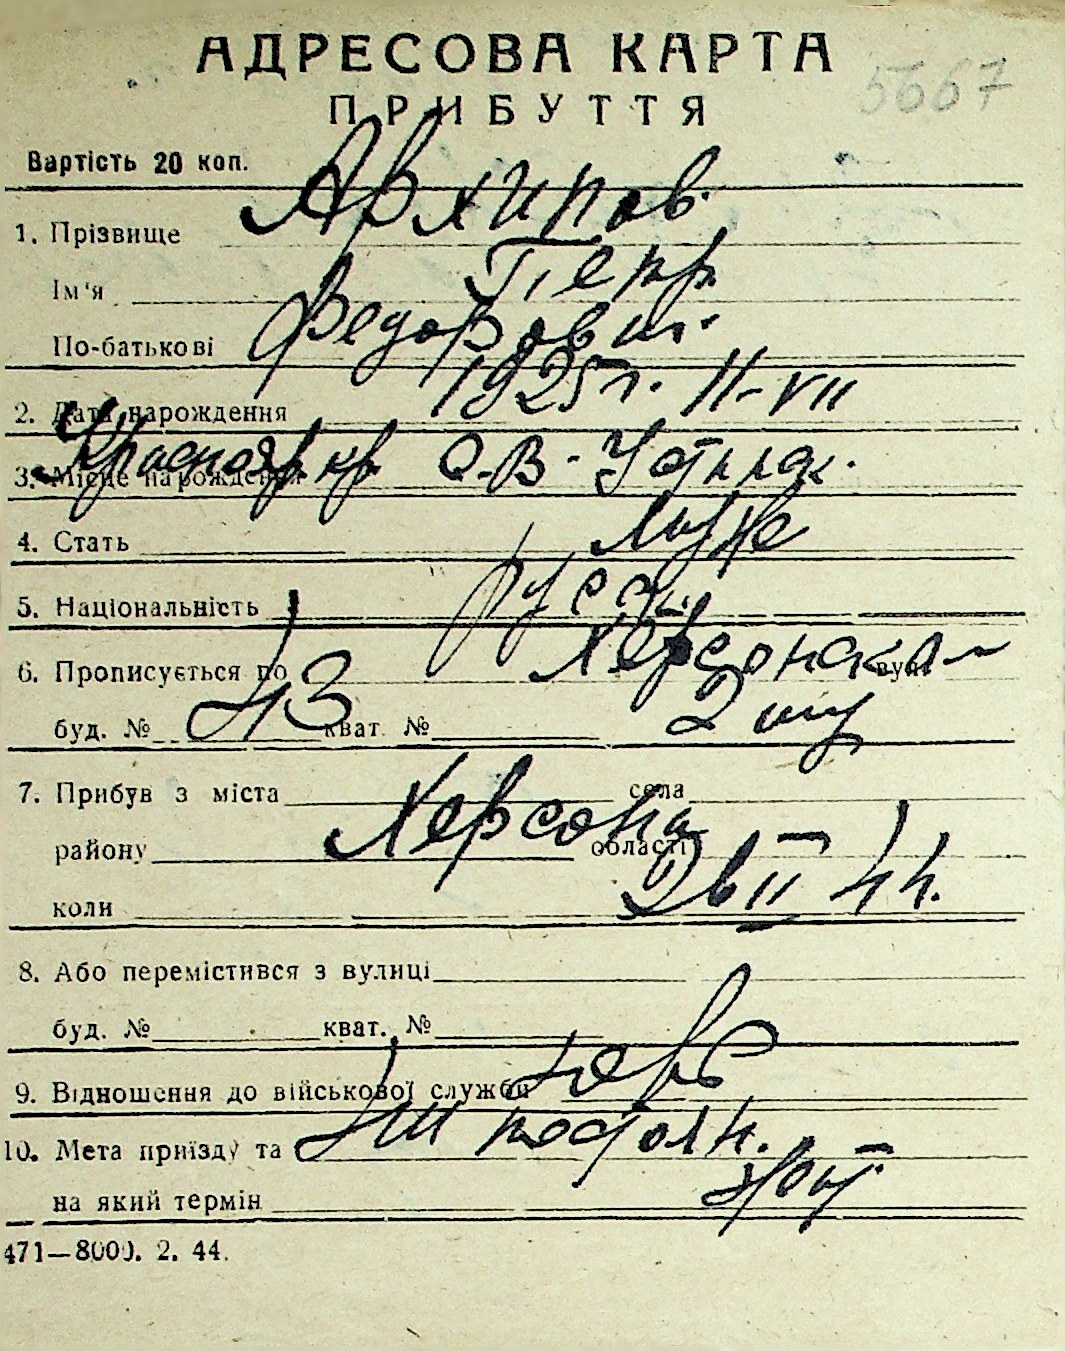 АДРЕСОВА КАРТА
ПРИБУТТЯ
5667
Вартість 20 коп.
1. Прізвище Архипов.
Ім'я Петр
По-батькові Федорович.
2. Дата народження 1925 г. 11-VII
3. Місце народження Краснояр кр.
4. Стать муж
5. Національність русск.
6. Прописується по Херсонская вул.
буд. № 43 кват. №
7. Прибув з міста Херсона села
району області
коли 26 II 44.
8. Або перемістився з вулиці
буд. № кват. №
9. Відношення до військової служби
10. Мета приїзду та
на який термін
471—8000. 2. 44.